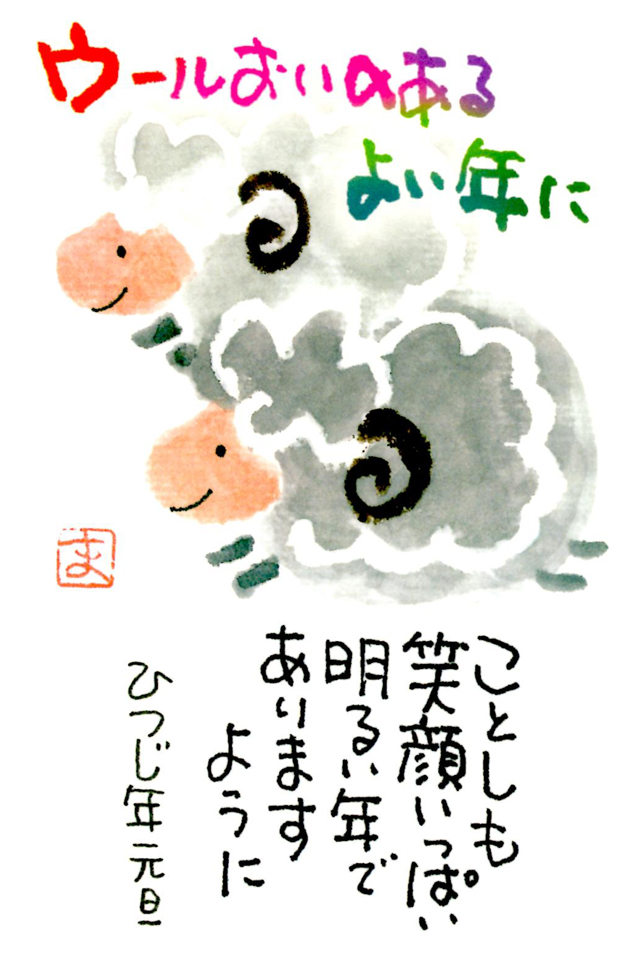 ウールおいのある
よい年に
ことしも
笑顔いっぱい
明るい年で
あります
ように
ひつじ年元旦
ま